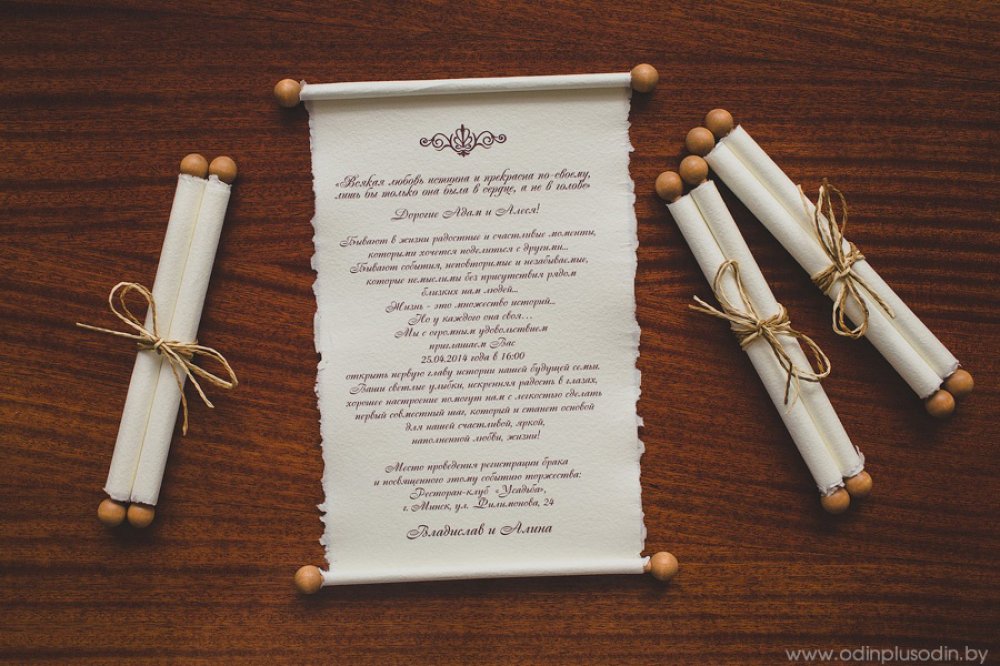 «Всякая любовь истинна и прекрасна по-своему,
лишь бы только она была в сердце, а не в голове»
Дорогие Адам и Алеся!
Бывают в жизни радостные и счастливые моменты,
которыми хочется поделиться с другими...
Бывают события, неповторимые и незабываемые,
которые немыслимы без присутствия рядом
близких нам людей...
Жизнь - это множество историй...
Но у каждого она своя...
Мы с огромным удовольствием
приглашаем Вас
25.04.2014 года в 16:00
открыть первую главу истории нашей будущей семьи.
Ваши светлые улыбки, искренняя радость в глазах,
хорошее настроение помогут нам с легкостью сделать
первый совместный шаг, который и станет основой
для нашей счастливой, яркой,
наполненной любви, жизни!
Место проведения регистрации брака
и посвященного этому событию торжества:
Ресторан-клуб «Усадьба»,
г. Минск, ул. Филимонова, 24
Владислав и Алина
www.odinplusodin.by